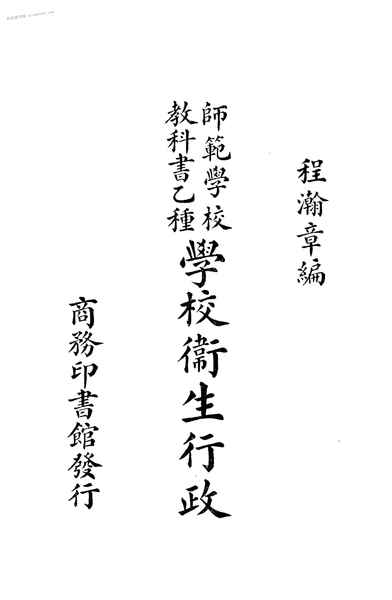 程瀚章編
師範學校
教科書乙種
學校衞生行政
商務印書館發行